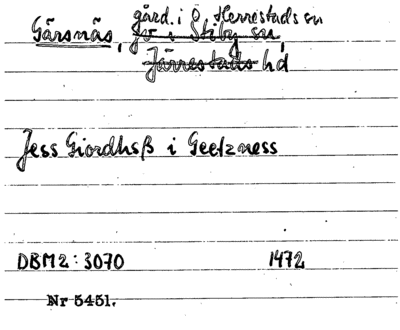 gård. i Ö Herrestads sn
Gärsnäs, gd i Stiby sn,
Järrestads hd
Jess Giordhsß i Geetzness
DBM2:3070 1472
Nr 5451.